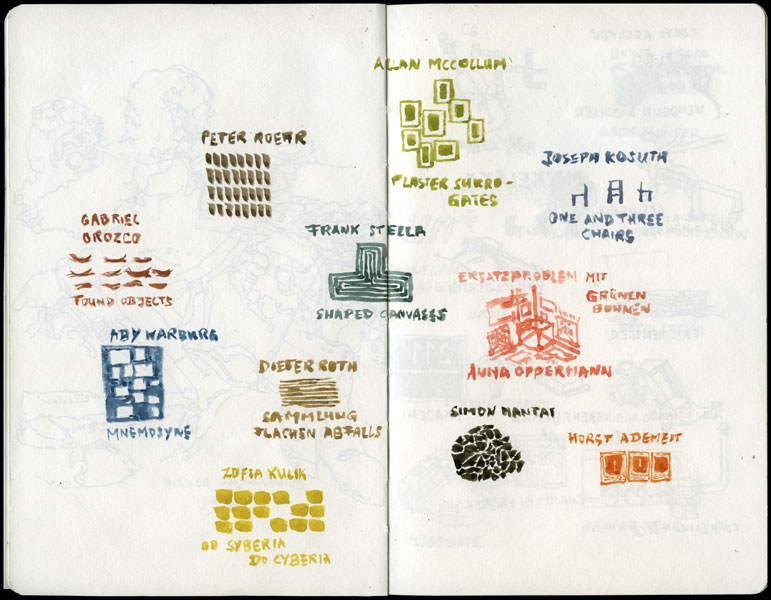 PETER ROEHR
GABRIEL
OROZCO
FOUND OBJECTS
ABY WARBURG
MNEMOSYNE
DIETER ROTH
SAMMLUNG
FLACHEN ABFALLS
ZOFIA KULIK
OD SYBERIA
DO CYBERIA
FRANK STELLA
SHAPED CANVASES
ALLAN MCCOLLUM
PLASTER SURRO-
GATES
JOSEPH KOSUTH
ONE AND THREE
CHAIRS
ERSATZPROBLEM MIT
GRÜNEN
BOHNEN
ANNA OPPERMANN
SIMON
HORST ADEMEIT